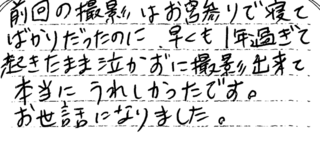 前回の撮影はお宮参りで寝て
ばかりだったのに、早くも1年過ぎて
起きたまま泣かずに撮影出来て
本当にうれしかったです。
お世話になりました。